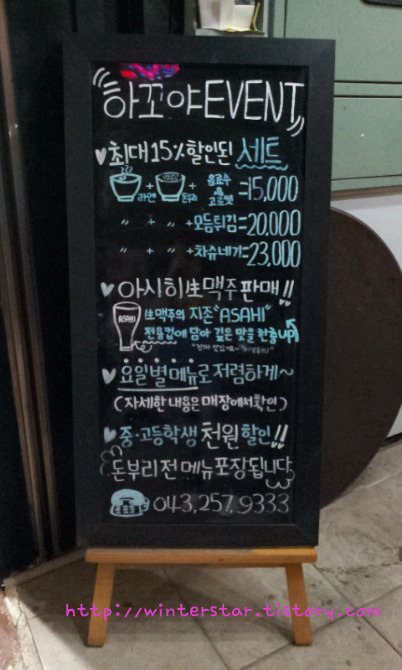 하꼬야EVENT
♥최대15%할인된 세트
라면 + 돈부리 + 음료수 고로켓 =15,000
〃 + 〃 +모듬튀김=20,000
〃 + 〃 +차슈네기=23,000
♥아사히生맥주판매!!
ASAHI
生맥주의 지존"ASAHI"
전용컵에 담아 깊은 맛을 한층up
♥요일별메뉴로 저렴하게~
(자세한 내용은 매장에서확인)
♥중·고등학생 천원 할인!!
돈부리전메뉴포장됩니다
☎043.257.9333
http://winterstar.tistory.com